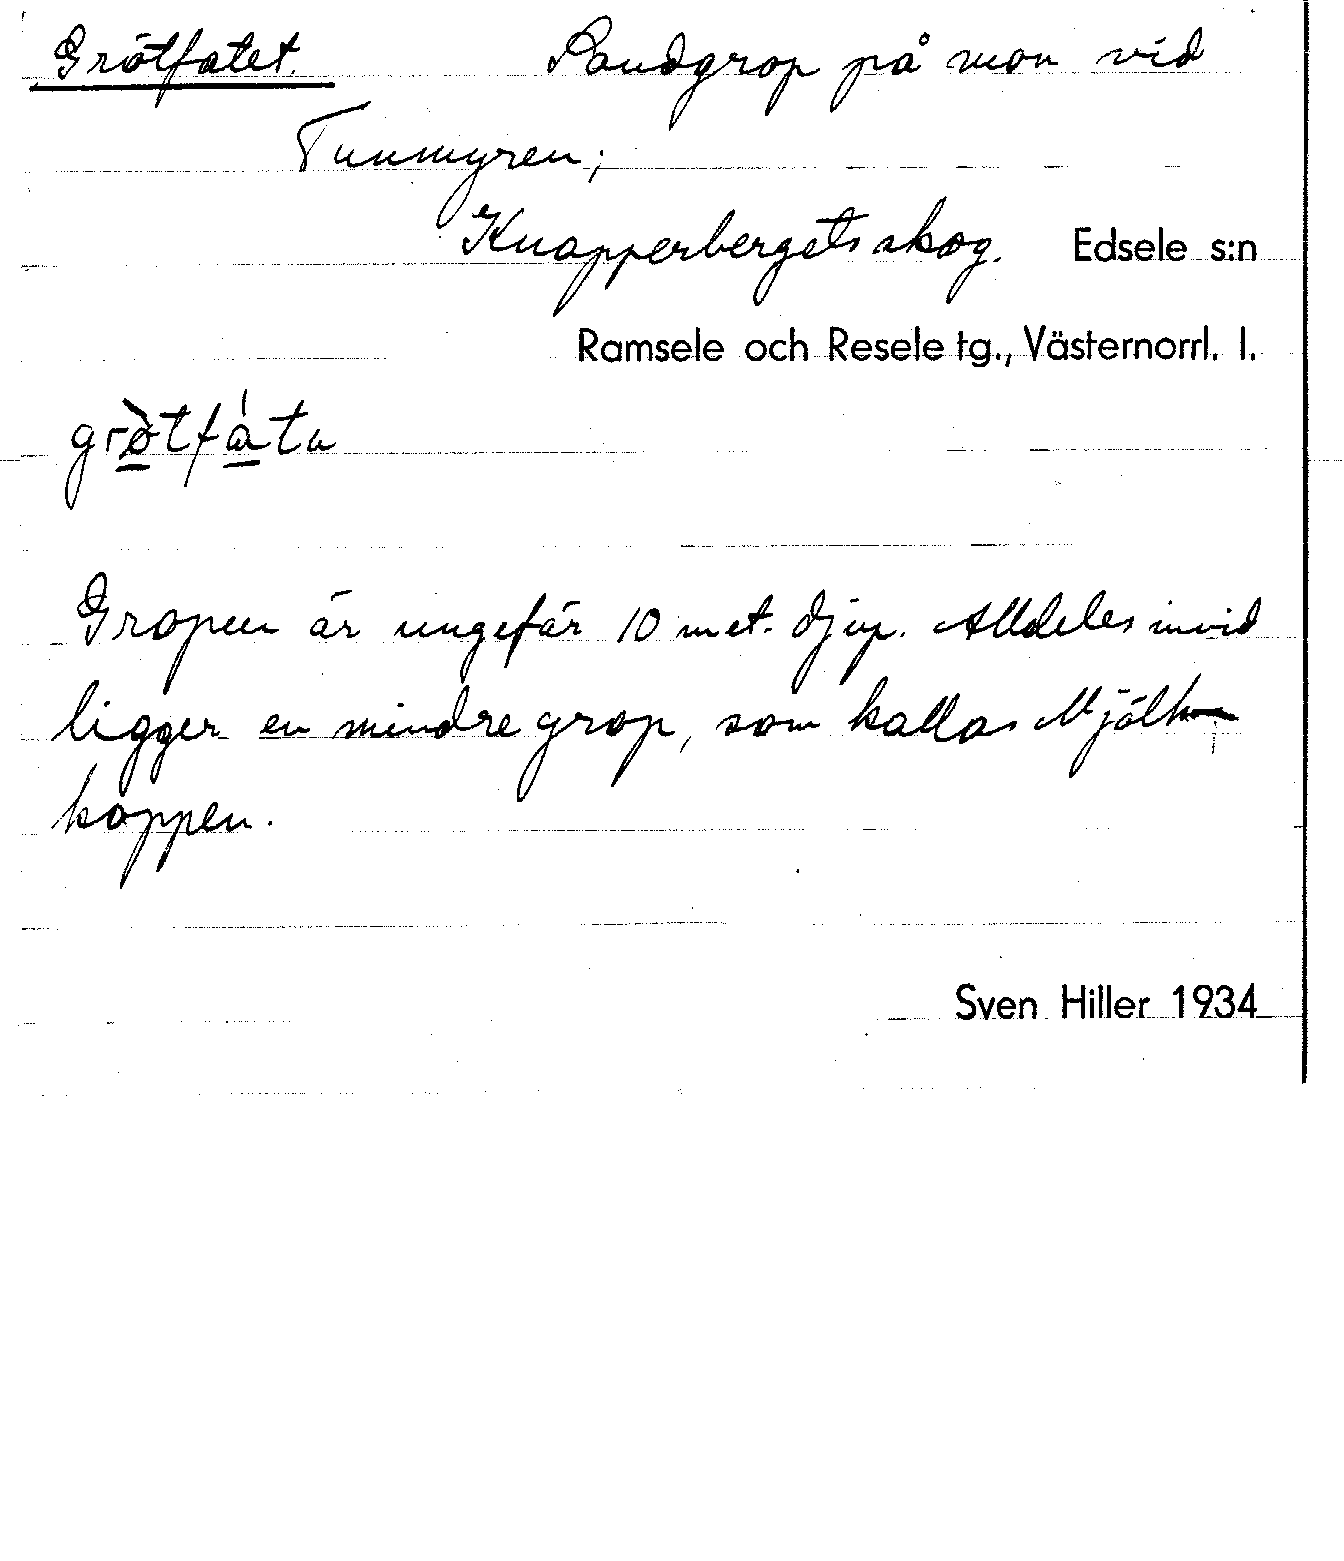 Grötfatet. Sandgrop på mon vid
Tunmyren;
Knapperbergets skog. Edsele s:n
Ramsele och Resele tg., Västernorrl. l.
grö̀tfáta
Gropen är ungefär 10 met. djup. Alldeles invid
ligger en mindre grop, som kallas Mjölk-
koppen.
Sven Hiller 1934